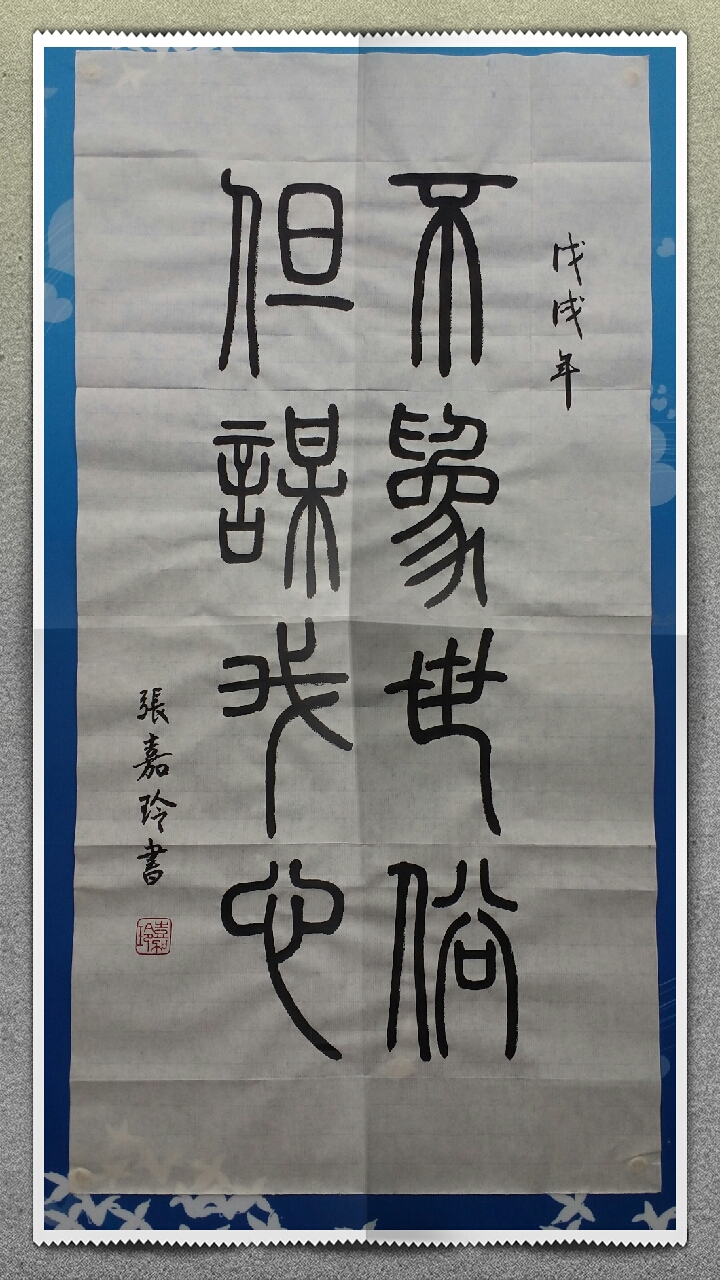 戊戌年
不象世俗
但謀我心
張嘉玲書
嘉玲